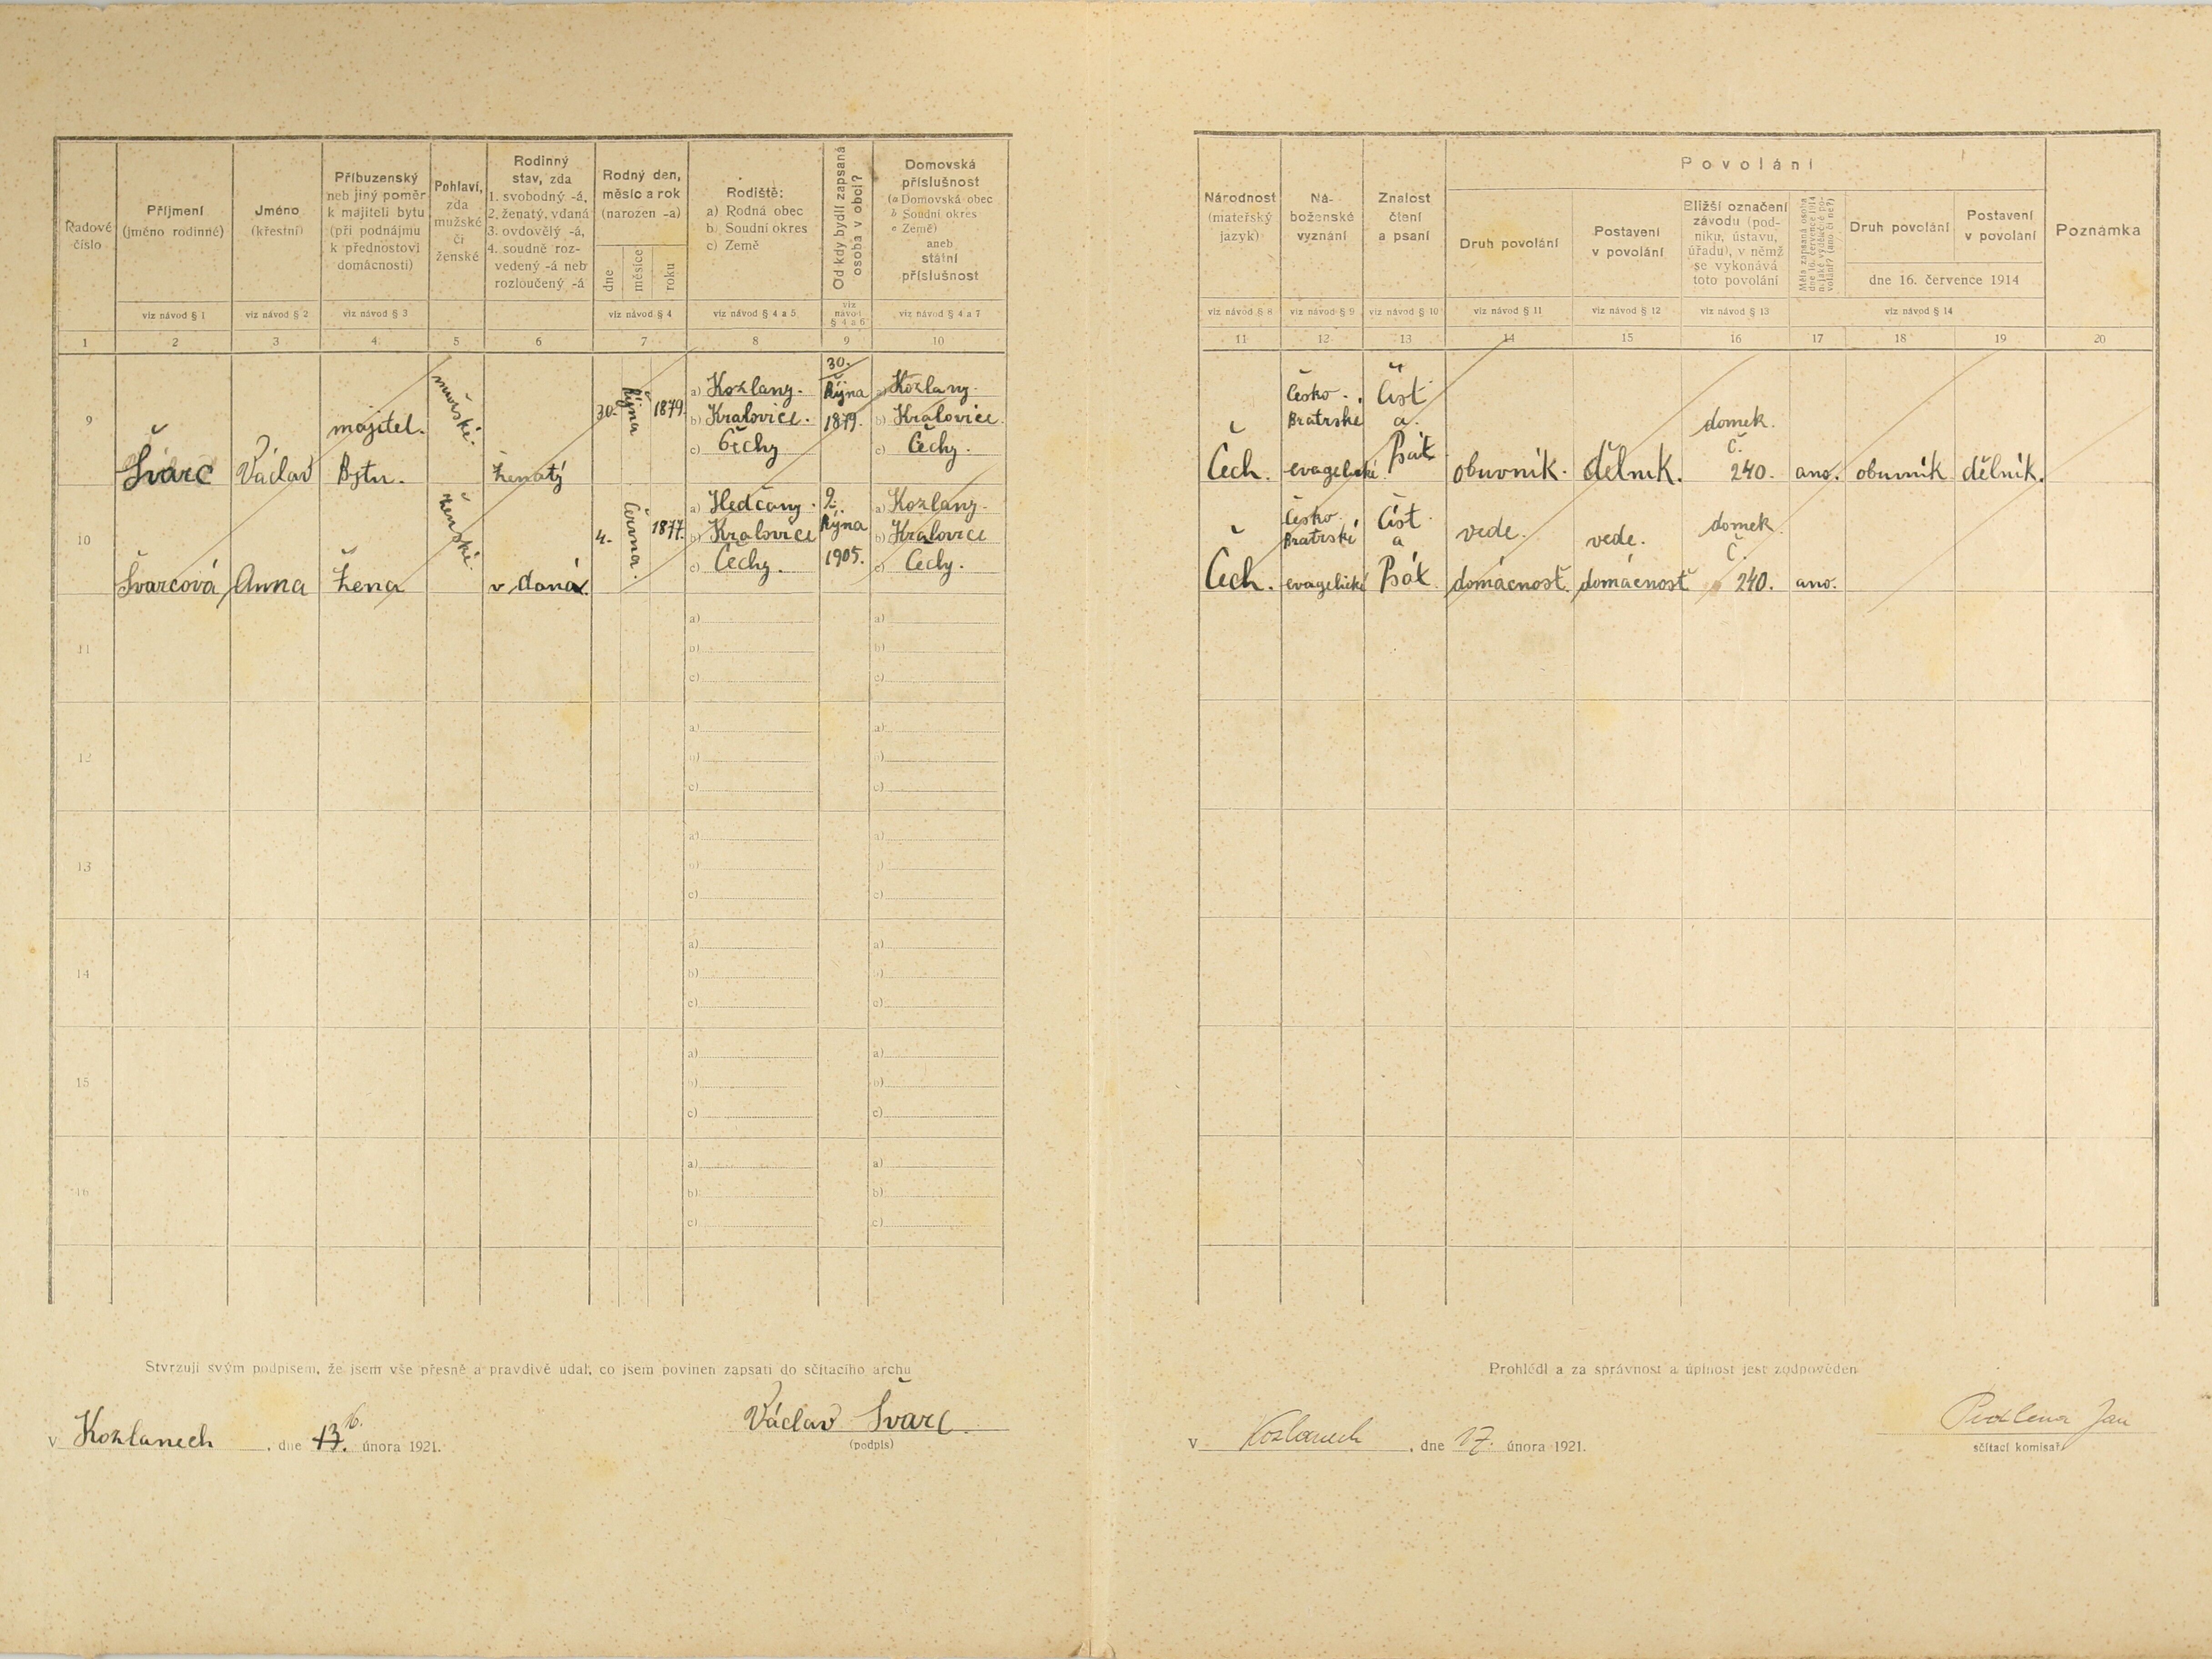 Řadové číslo
Příjmení (jméno rodinné)
Jméno (křestní)
Příbuzenský neb jiný poměr k majiteli bytu (při podnájmu k přednostovi domácnosti)
Pohlaví, zda mužské či ženské
Rodinný stav, zda 1. svobodný -á, 2. ženatý, vdaná 3. ovdovělý -á, 4. soudně rozvedený -á neb rozloučený -á
Rodný den, měsíc a rok (narozen -a)
dne měsíce roku
Rodiště: a) Rodná obec b) Soudní okres c) Země
Od kdy bydlí zapsaná osoba v obci?
Domovská příslušnost (a Domovská obec b Soudní okres c Země) aneb státní příslušnost
viz návod § 1
viz návod § 2
viz návod § 3
viz návod § 4
viz návod § 4 a 5
viz návod § 4 a 6
viz návod § 4 a 7
1 2 3 4 5 6 7 8 9 10
9 Švarc Václav majitel. Bytu. mužské. ženatý 30. října 1879.
a) Kozlany.
b) Kralovice.
c) Čechy
30. Října 1879.
a) Kozlany.
b) Kralovice.
c) Čechy.
10 Švarcová Anna žena ženské. v daná 4. června. 1877.
a) Hedčany.
b) Kralovice
c) Čechy.
2. Října 1905.
a) Kozlany.
b) Kralovice
c) Čechy.
11
a)
b)
c)
a)
b)
c)
12
a)
b)
c)
a)
b)
c)
13
a)
b)
c)
a)
b)
c)
14
a)
b)
c)
a)
b)
c)
15
a)
b)
c)
a)
b)
c)
16
a)
b)
c)
a)
b)
c)
Stvrzuji svým podpisem, že jsem vše přesně a pravdivě udal, co jsem povinen zapsati do sčítacího archu
Václav Švarc.
v Kozlanech, dne 13. 16. února 1921.
(podpis)
Národnost (mateřský jazyk)
Náboženské vyznání
Znalost čtení a psaní
Povolání
Druh povolání
Postavení v povolání
Bližší označení závodu (podniku, ústavu, úřadu), v němž se vykonává toto povolání
Měla zapsaná osoba dne 16. července 1914 nějaké výdělečné povolání? (ano či ne?)
Druh povolání
Postavení v povolání
dne 16. července 1914
Poznámka
viz návod § 8
viz návod § 9
viz návod § 10
viz návod § 11
viz návod § 12
viz návod § 13
viz návod § 14
11 12 13 14 15 16 17 18 19 20
Čech. Česko. Bratrské evagelické. Číst a. Psát obuvník. dělník. domek. Č. 240. ano. obuvník dělník.
Čech. Česko. Bratrské evagelické Číst. a Psát. vede. domácnost. vede. domácnost domek Č. 240. ano.
Prohlédl a za správnost a úplnost jest zodpověden
Jan
v Kozlanech, dne 17. února 1921.
sčítací komisař